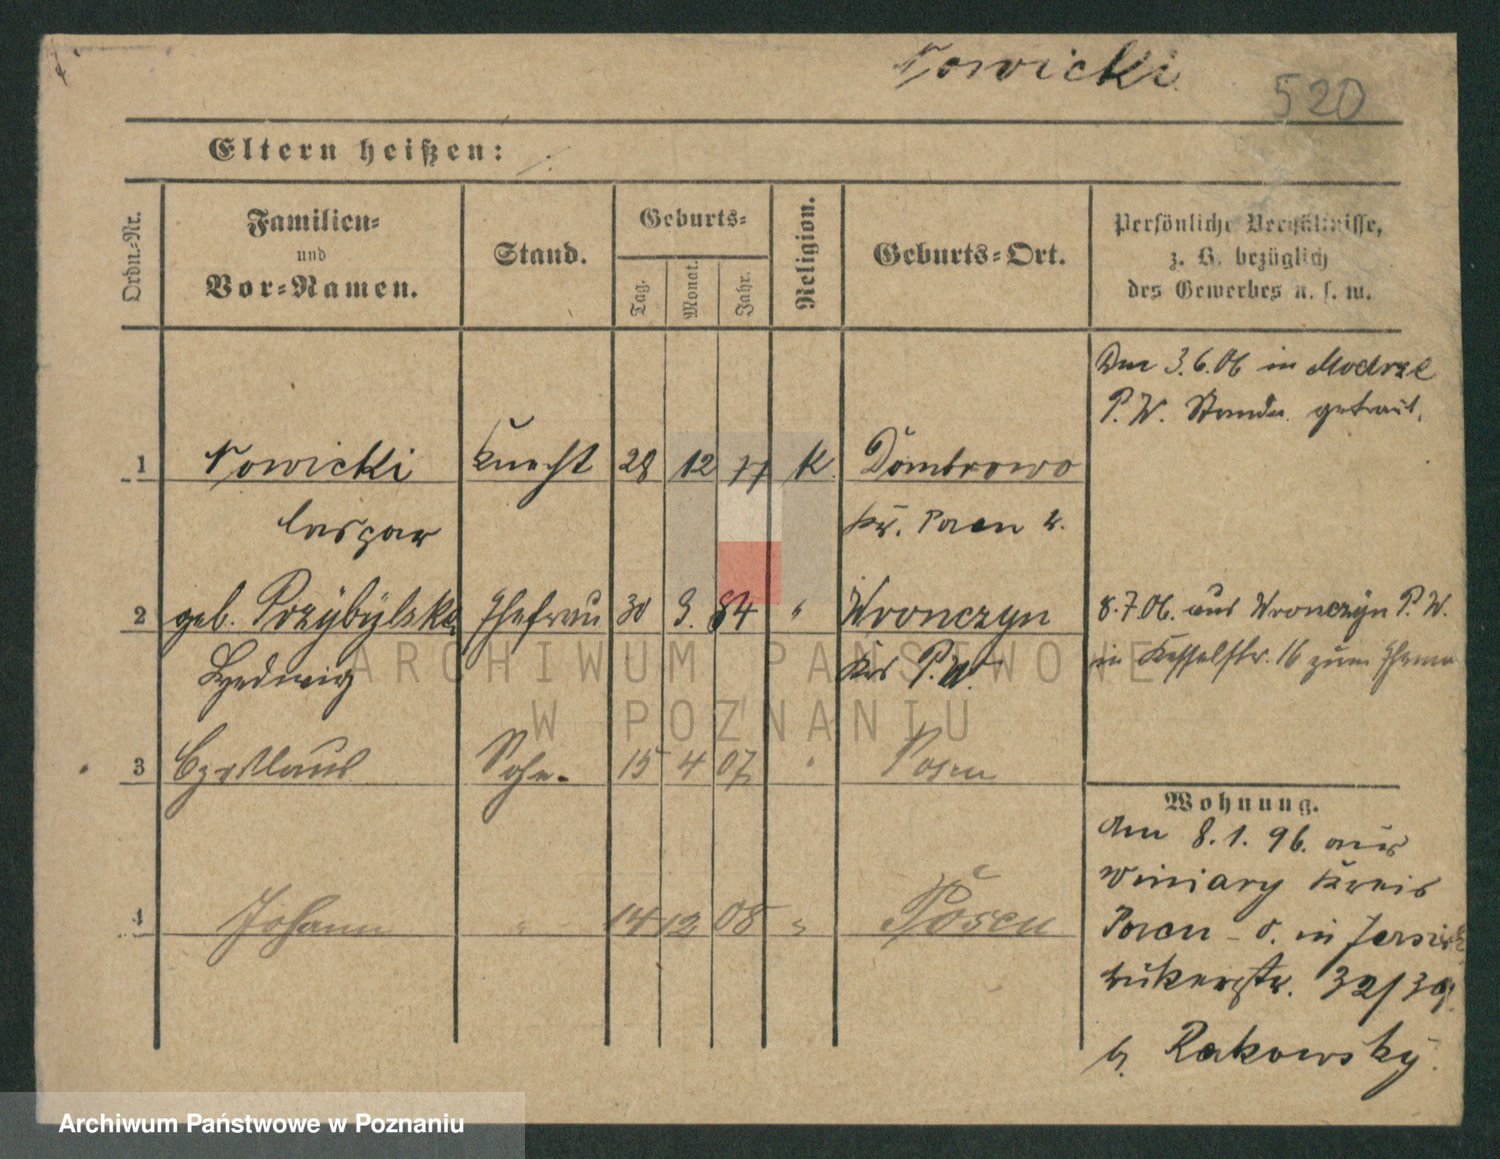 Nowicki
520
Eltern heißen:
Ordn.-Nr.
Familien-
und
Vor-Namen.
Stand.
Geburts-
Tag.
Monat.
Jahr.
Religion.
Geburts-Ort.
Persönliche Verhältnisse,
z. B. bezüglich
des Gewerbes u. s. w.
Den 3.6.06 in Modrze
P. W. Standa. getraut.
1 Nowicki Knecht 28 12 77 K Dombrowo
Caspar Kr. Posen W.
2 geb. Przybylska Ehefrau 30 9. 84 " Wronczyn
Hedwig Krs P. W.
8.7.06. aus Wronczyn P. W.
in Kesselstr. 16 zum Ehemann
3 Czeslaus Sohn. 15 4 07 " Posen
4 Johann " 14 12 08 " Posen
Wohnung.
Am 8.1.96. aus
Winiary Kreis
Posen - O. in Jersitz
32/39
b. Rakowsky.
ARCHIWUM PAŃSTWOWE
W POZNANIU
Archiwum Państwowe w Poznaniu